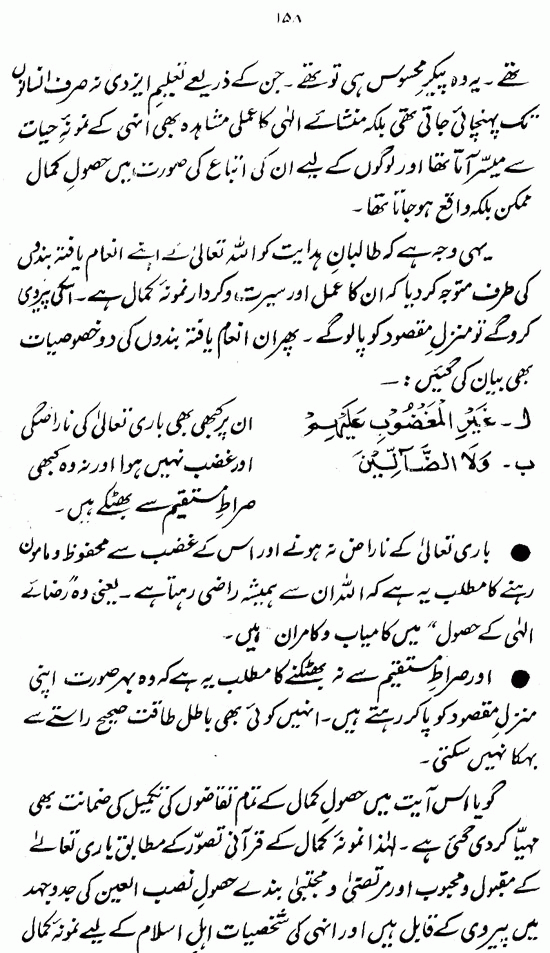 ۱۵۸
تھے ۔ یہ وہ پیکرِ محسوس ہی تو تھے ۔ جن کے ذریعے تعلیمِ ایزدی نہ صرف انسانوں
تک پہنچائی جاتی تھی بلکہ منشائے الٰہی کا عملی مشاہدہ بھی انہی کے نمونۂ حیات
سے میسّر آتا تھا اور لوگوں کے لیے ان کی اتباع کی صورت میں حصولِ کمال
ممکن بلکہ واقع ہو جاتا تھا ۔
یہی وجہ ہے کہ طالبانِ ہدایت کو اللہ تعالیٰ نے اپنے انعام یافتہ بندوں
کی طرف متوجہ کر دیا کہ ان کا عمل اور سیرت و کردار نمونۂ کمال ہے ۔ اسکی پیروی
کرو گے تو منزلِ مقصود کو پا لو گے ۔ پھر ان انعام یافتہ بندوں کی دو خصوصیات
بھی بیان کی گئیں : —
ا ۔ غَيْرِ الْمَغْضُوْبِ عَلَيْهِمْ ان پر کبھی بھی باری تعالیٰ کی ناراضگی
ب ۔ وَلَا الضَّآلِّيْنَ اور غضب نہیں ہوا اور نہ وہ کبھی
صراطِ مستقیم سے بھٹکے ہیں ۔
● باری تعالیٰ کے ناراض نہ ہونے اور اس کے غضب سے محفوظ و مامون
رہنے کا مطلب یہ ہے کہ اللہ ان سے ہمیشہ راضی رہتا ہے ۔ یعنی وہ "رضائے
الٰہی کے حصول" میں کامیاب و کامران ہیں ۔
● اور صراطِ مستقیم سے نہ بھٹکنے کا مطلب یہ ہے کہ وہ بہر صورت اپنی
منزلِ مقصود کو پا کر رہتے ہیں ۔ انہیں کوئی بھی باطل طاقت صحیح راستے سے
بہکا نہیں سکتی ۔
گویا اس آیت میں حصولِ کمال کے تمام تقاضوں کی تکمیل کی ضمانت بھی
مہیّا کر دی گئی ہے ۔ لہٰذا نمونۂ کمال کے قرآنی تصوّر کے مطابق باری تعالےٰ
کے مقبول و محبوب اور مرتضیٰ و مجتبیٰ بندے حصولِ نصب العین کی جدوجہد
میں پیروی کے قابل ہیں اور انہی کی شخصیات اہلِ اسلام کے لیے نمونۂ کمال